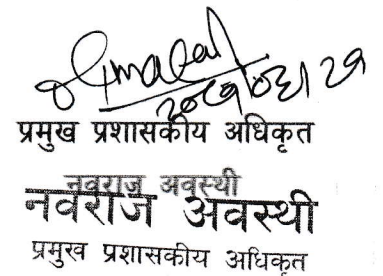 प्रमुख प्रशासकीय अधिकृत
नवराज अवस्थी
नवराज अवस्थी
प्रमुख प्रशासकीय अधिकृत